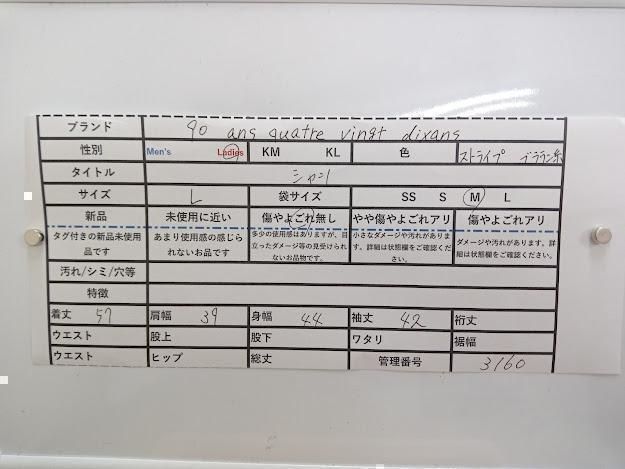 ブランド 90 ans quatre vingt dixans
性別 Men's Ladies KM KL 色 ストライプ ブラウン系
タイトル シャツ
サイズ L 袋サイズ SS S M L
新品 未使用に近い 傷やよごれ無し やや傷やよごれアリ 傷やよごれアリ
タグ付きの新品未使用品です あまり使用感の感じられないお品です 多少の使用感はありますが、目立ったダメージ等の見受けられないお品物です。 小さなダメージや汚れがあります。詳細は状態欄をご確認ください。 ダメージや汚れがあります。詳細は状態欄をご確認ください。
汚れ/シミ/穴等
特徴
着丈 57 肩幅 39 身幅 44 袖丈 42 裄丈
ウエスト 股上 股下 ワタリ 裾幅
ウエスト ヒップ 総丈 管理番号 3160